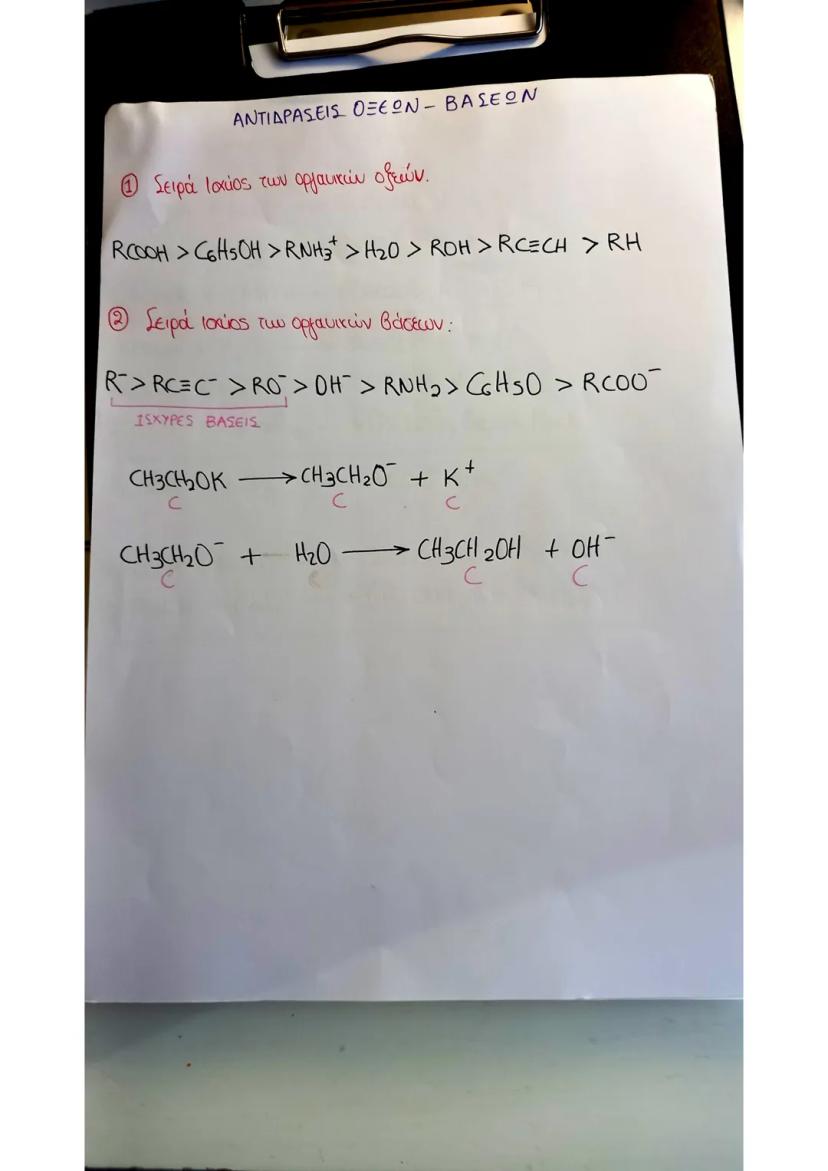 ΑΝΤΙΔΡΑΣΕΙΣ ΟΞΕΩΝ - ΒΑΣΕΩΝ
① Σειρά Ισχύος των οργανικών οξέων.
RCOOH > C6H5OH > RNH3+ > H2O > ROH > RC≡CH > RH
② Σειρά ισχύος των οργανικών βάσεων:
R- > RC≡C- > RO- > OH- > RNH2 > C6H5O > RCOO-
ΙΣΧΥΡΕΣ ΒΑΣΕΙΣ
CH3CH2OK ⟶ CH3CH2O- + K+
C C C
CH3CH2O- + H2O ⟶ CH3CH2OH + OH-
C C C C